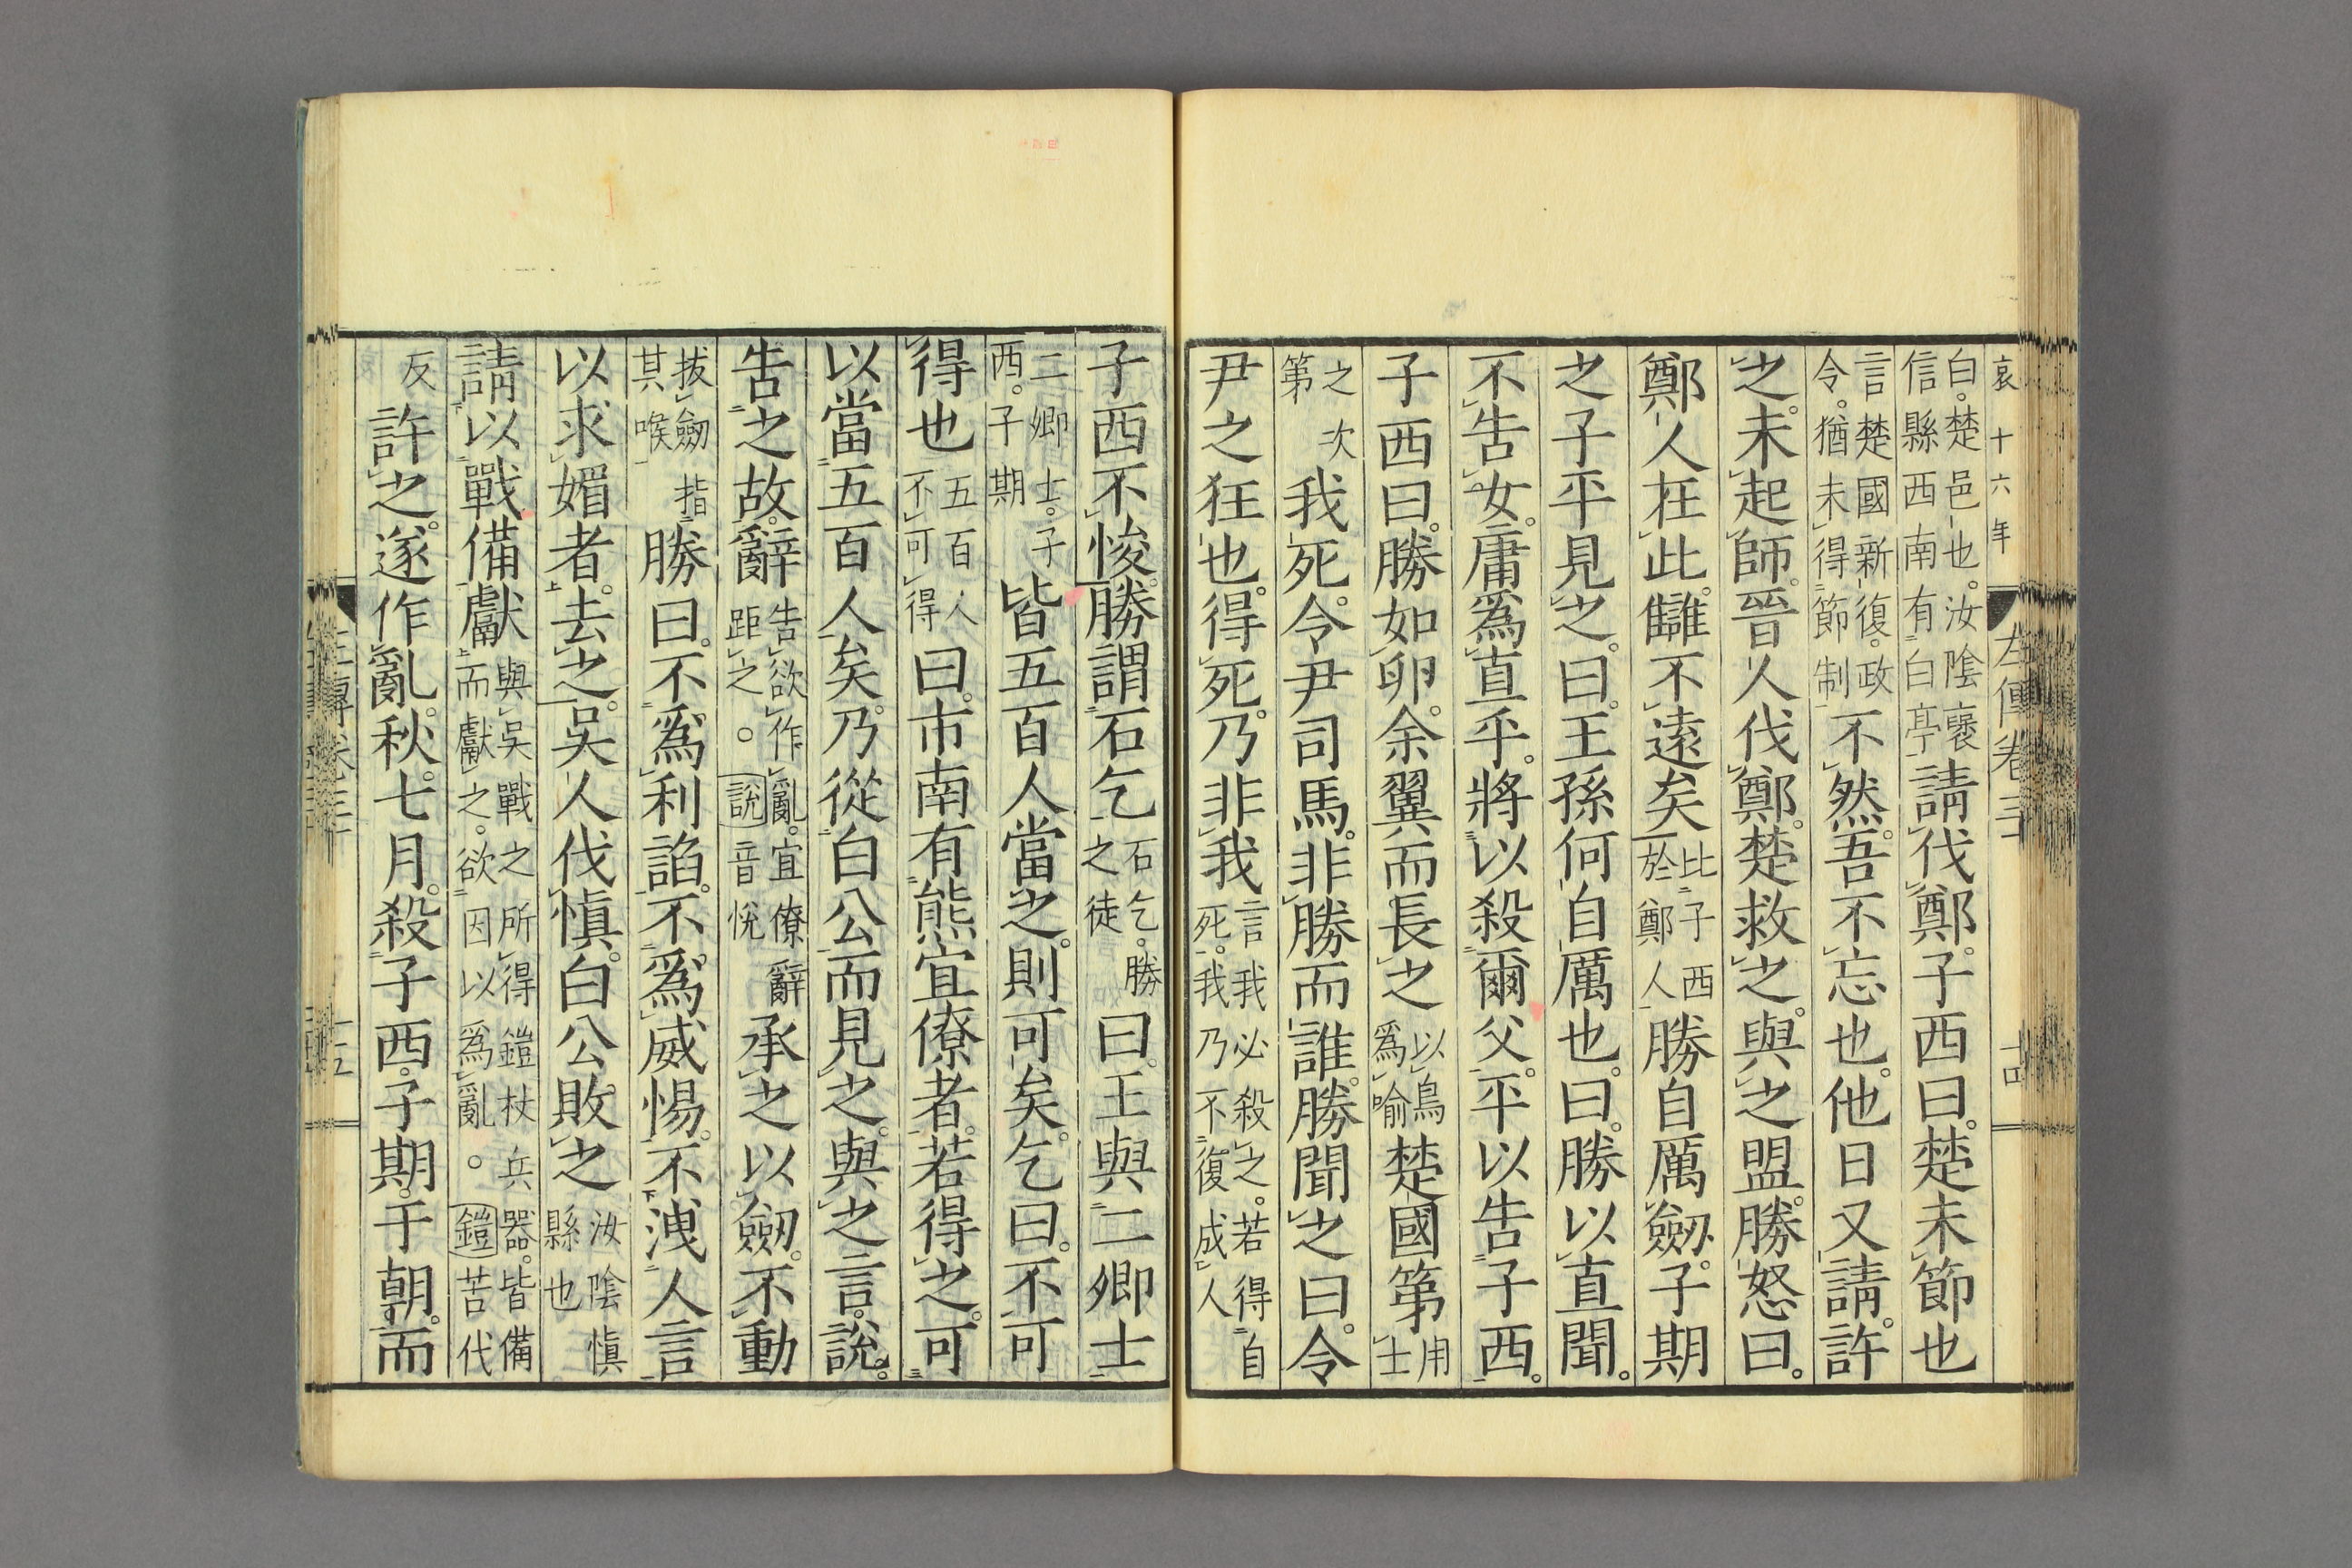 哀十六年
左傳卷三十
十四
白。楚邑也。汝陰褒信縣西南有白亭請伐鄭。子西曰。楚未節也
言楚國新復。政令。猶未得節制不然。吾不忘也。他日又請。許
之。未起師。晉人伐鄭。楚救之。與之盟。勝怒曰。
鄭人在此。讎不遠矣比子西於鄭人勝自厲劒。子期
之子平見之。曰。王孫何自厲也。曰。勝以直聞。
不告女。庸爲直乎。將以殺爾父。平以告子西。
子西曰。勝如卵。余翼而長之以鳥爲喻楚國第用士
之次第我死。令尹司馬。非勝而誰。勝聞之曰。令
尹之狂也。得死。乃非我言我必殺之。若得自死。我乃不復成人
子西不悛。勝謂石乞石乞。勝之徒曰。王與二卿士
二卿士。子西。子期皆五百人當之。則可矣。乞曰。不可
得也五百人不可得曰。市南有熊宜僚者。若得之。可
以當五百人矣。乃從白公而見之。與之言。說。
告之故。辭告欲作亂。宜僚辭距之。○說音悅承之以劒。不動
拔劒指其喉勝曰。不爲利諂。不爲威惕。不洩人言
以求媚者。去之。吳人伐愼。白公敗之汝陰愼縣也
請以戰備獻與吳戰之所得鎧杖兵器。皆備而獻之。欲因以爲亂。○鎧苦代
反許之。遂作亂。秋。七月。殺子西。子期。于朝。而